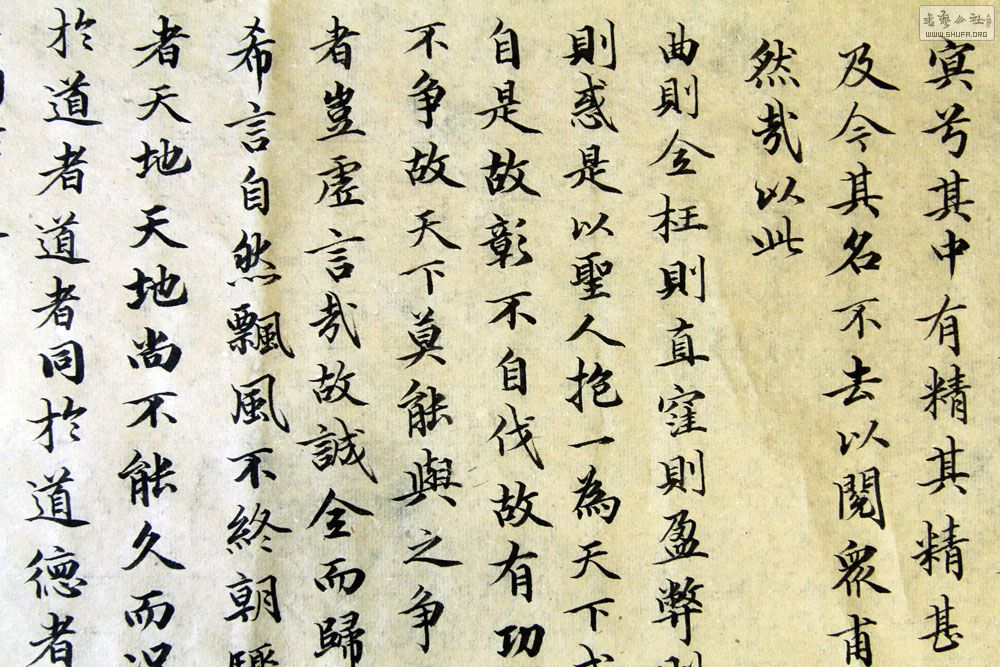 冥兮其中有精其精甚
及今其名不去以閱眾甫
然㢤以此
曲則全枉則直窪則盈弊則
則惑是以聖人抱一為天下式
自是故彰不自伐故有功
不争故天下莫能與之争
者豈虛言㢤故誠全而歸
希言自然飄風不終朝驟
者天地天地尚不能久而況
於道者道者同於道德者
書藝公社
WWW.SHUFA.ORG